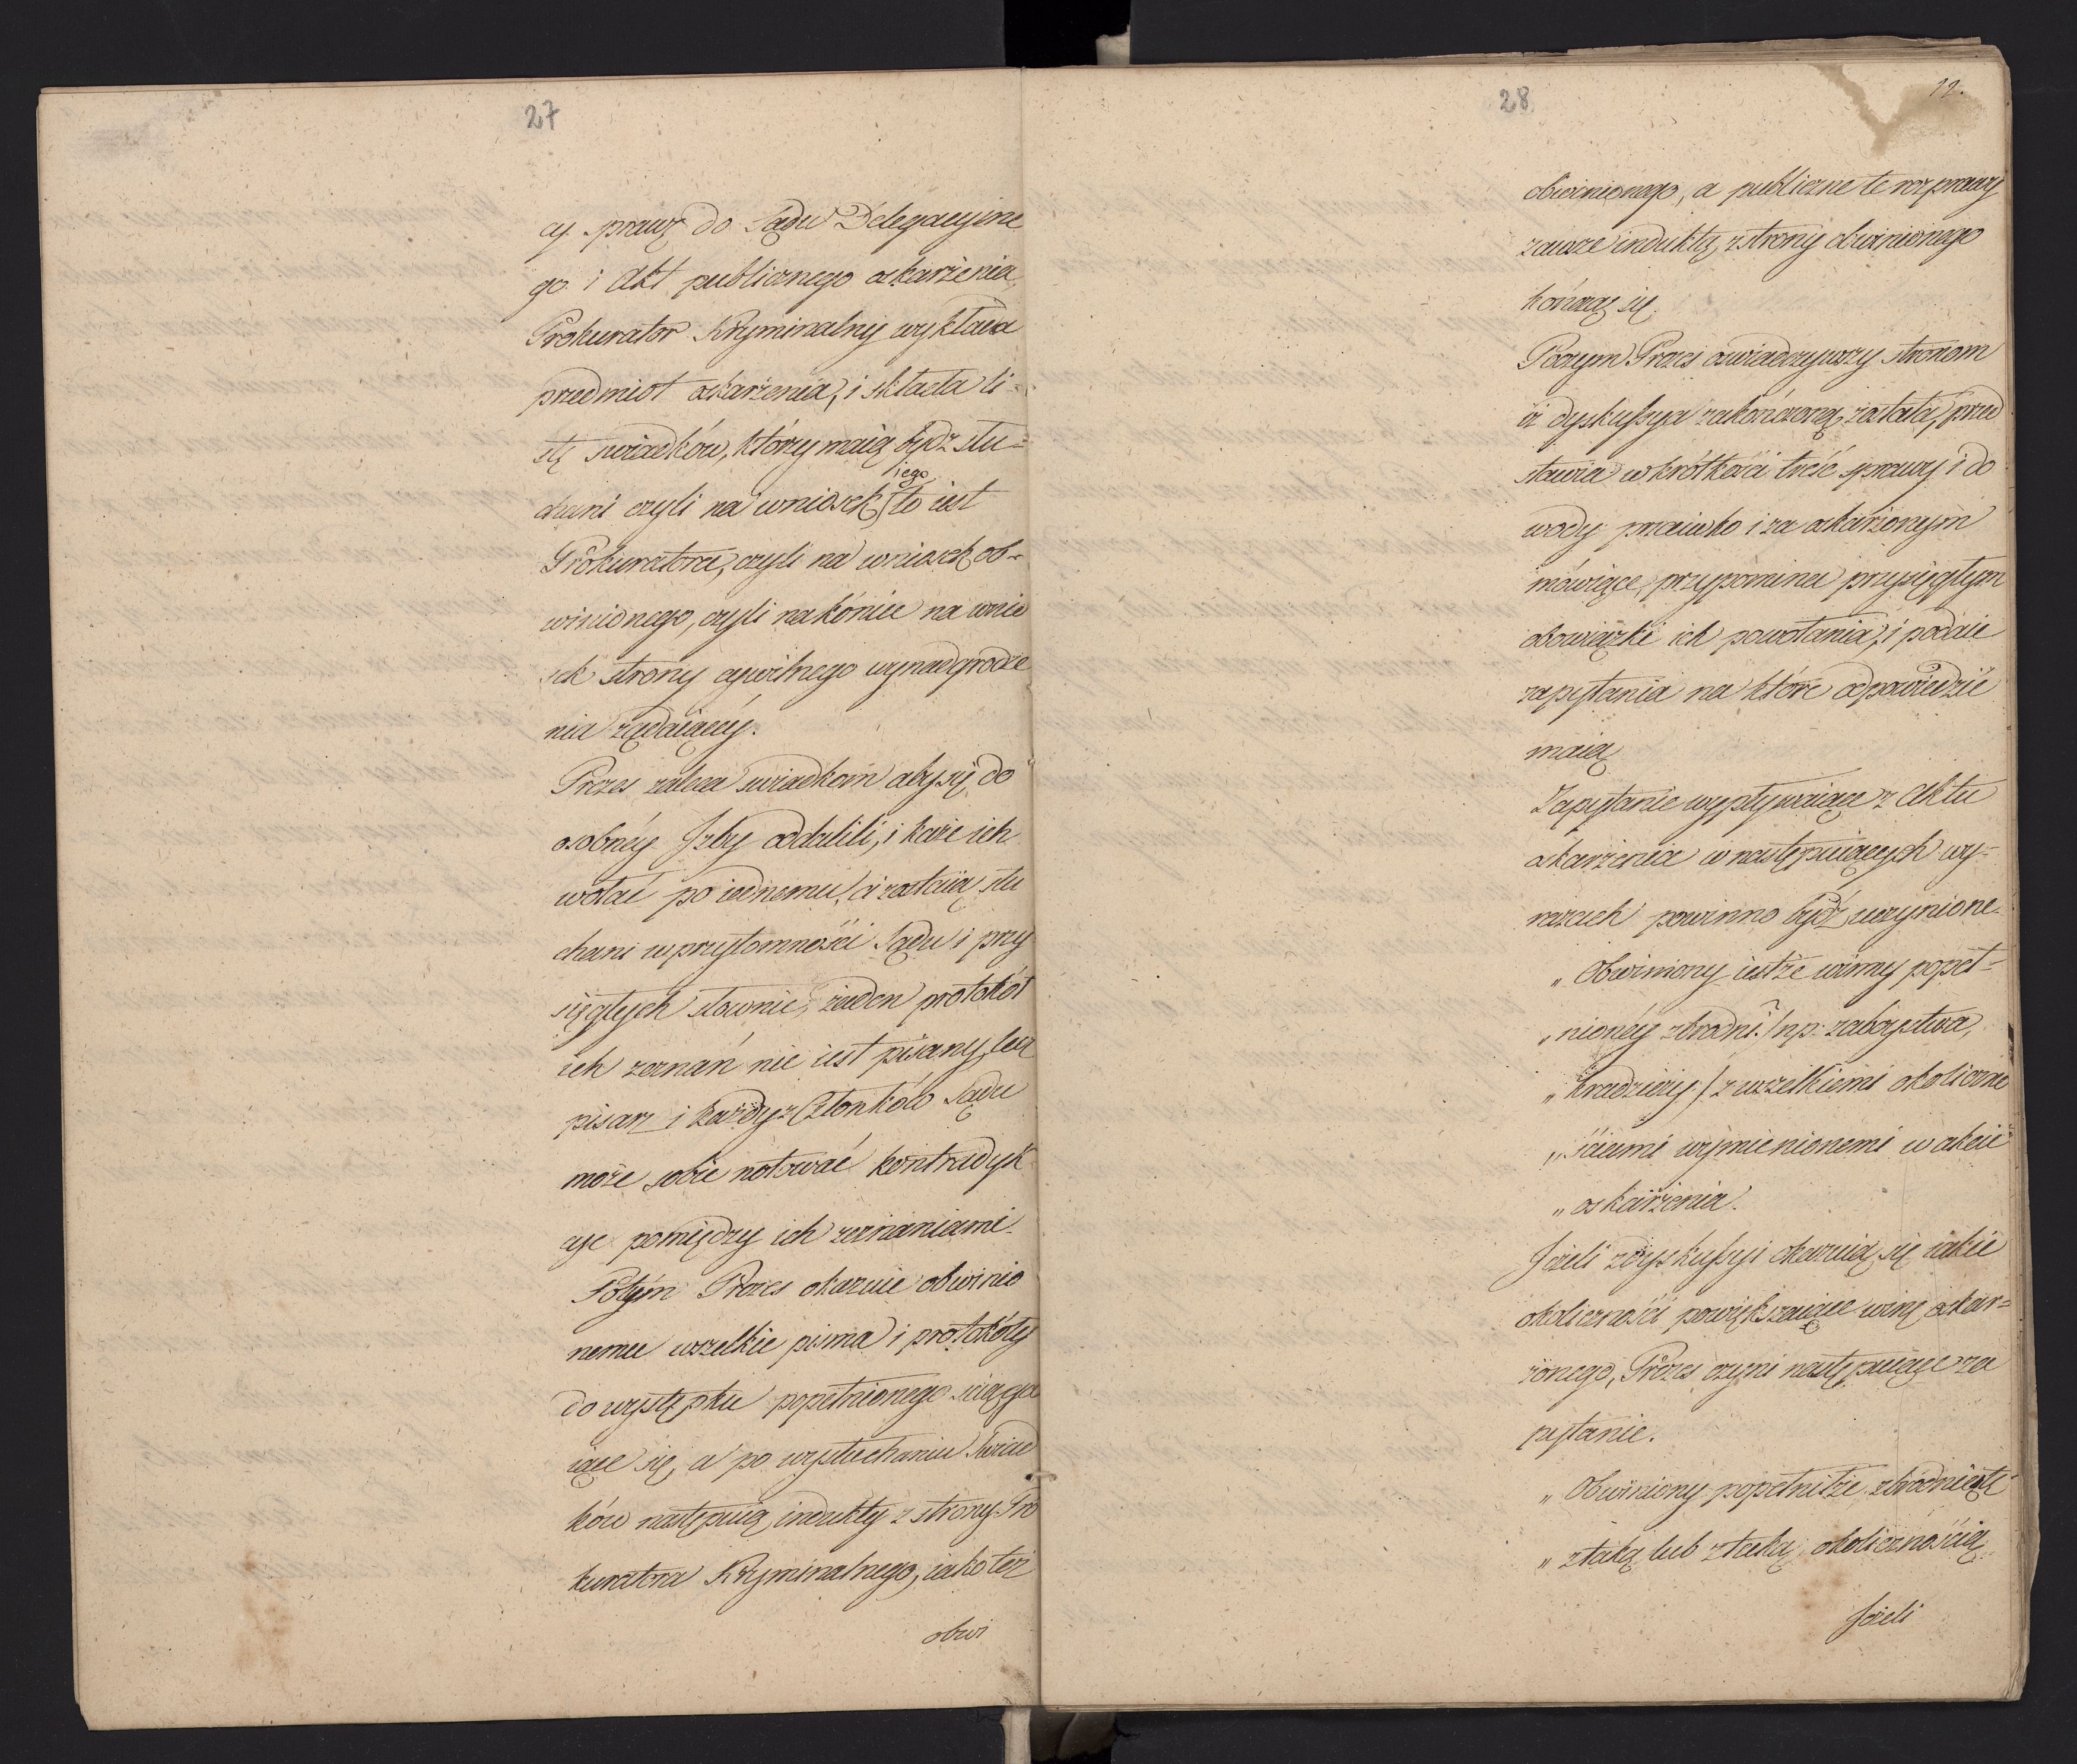 27
cy sprawę do Sądu Delegacyine
go i Akt publicznego oskarżenia,
Prokurator Kryminalny wykłada
przedmiot oskarżenia, i składa li-
stę swiadków, którzy maią bydz słu=
iego
chani czyli na wniosek (to iest
Prokuratora, czyli na wniosek ob-
winionego, czyli nakóniec na wnio
sek strony cywilnego wynadgrodze
nia żądaiącéy.
Prezes zaleca swiadkom aby się do
osobnéy Izby oddalili, i każe ich
wołać po iednemu, ci zostaią słu
chani w przytomności Sądu i przy
sięgłych słownie, żaden protokół
ich zeznań nie iest pisany, lecz
pisarz i każdy z Członków Sądu
może sobie notować kontradyk
cye pomiędzy ich zeznaniami.
Potym Prezes okazuie obwinio
nemu wszelkie pisma i protokóły
do występku popełnionego sciąga
iące się, a po wysłuchaniu Swiad
ków następuią indukty z strony Pro
kuratora Kryminalnego, iako też
obwi
28
12.
obwinionego, a publiczne te rozprawy
zawsze induktą z strony obwinionego
kończą się.
Poczym Prezes oswiadczywszy stronom
iż dyskussya zakończoną została, przed
stawia w krótkości treść sprawy i do
wody przeciwko i za oskarżonym
mówiące, przypomina przysięgłym
obowiązki ich powołania, i podaie
zapytania na które odpowiedzić
maią
Zapytanie wypływaiące z Aktu
oskarżenia w następuiących wy=
razach powinno bydź uczynione.
„ Obwiniony iestże winny popeł=
„ nionéy zbrodni? /np: zabóystwa,
„ kradzieży/ z wszelkiemi okoliczno
„ ściami wymienionemi w akcie
„ oskarżenia.
Jeżeli z dyskussyi okazuią się iakie
okoliczności powiększaiące winę oskar=
żonego, Prezes czyni następuiące za
pytanie.
„ Obwiniony popełniłże zbrodnię tę
„ z taką lub z taką okolicznością
Jeżeli